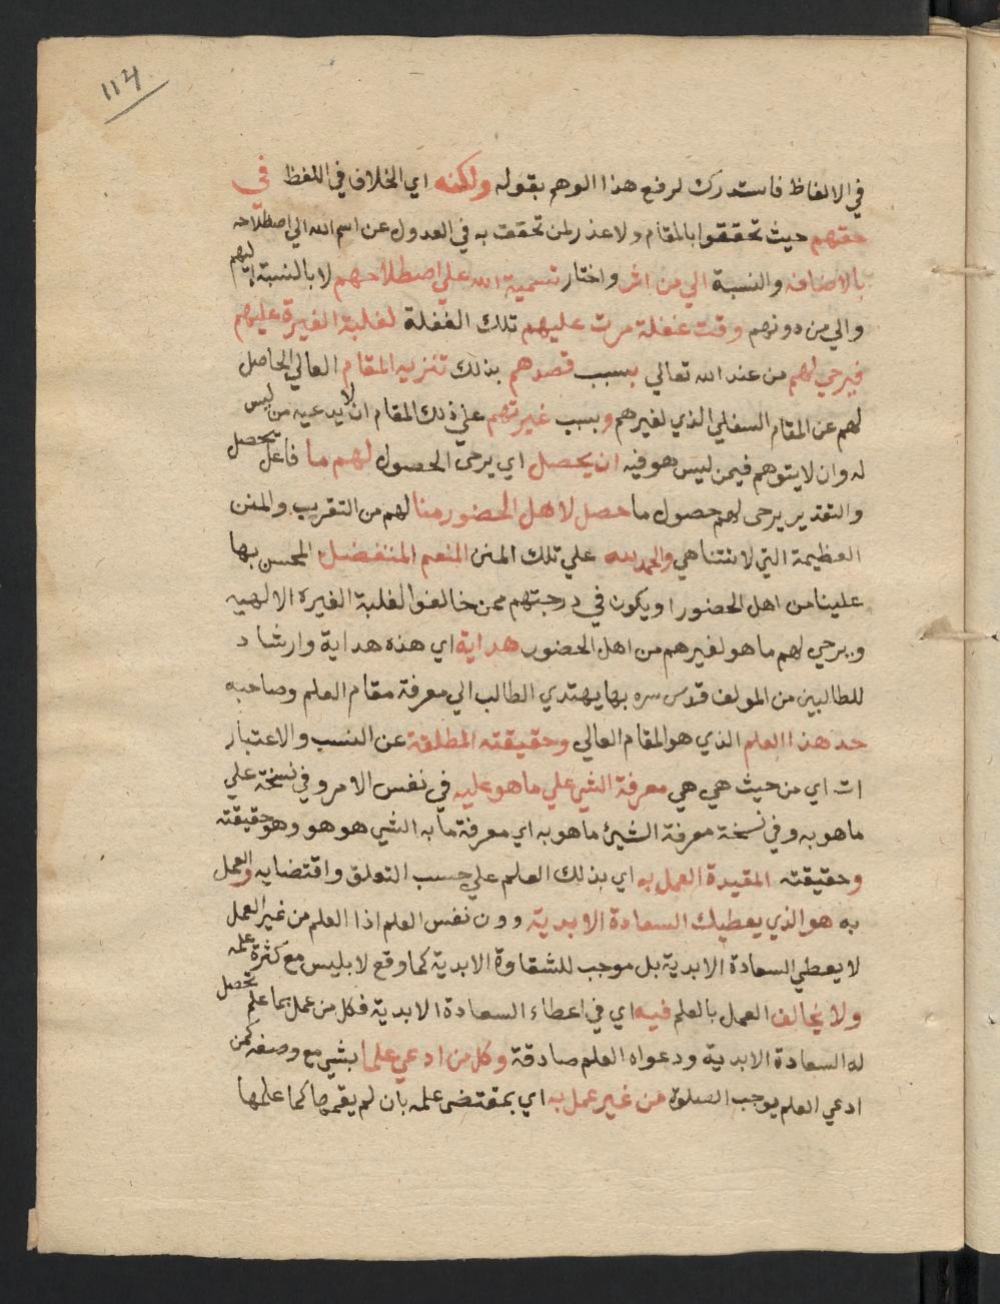 114
في الالفاظ فاستدرك لرفع هذا الوهم بقوله ولكنه اي الخلاف في اللفظ في
حقهم حيث تحققوا بالمقام ولا عذر لمن تحقق به في العدول عن اسم الله الي اصطلاحه
بالاضافه والنسبة الي من اثر واختار تسمية الله علي اصطلاحهم لا بالنسبة اليهم
والي من دونهم وقت غفلة مرت عليهم تلك الغفلة لغلبة الغيرة عليهم
فيرجي لهم من عند الله تعالي بسبب قصدهم بذلك تنزيه المقام العالي الحاصل
لهم عن المقام السفلي الذي لغيرهم وبسبب غيرتهم علي ذلك المقام ان لا يدعيه من ليس
له وان لا يتوهم فيمن ليس هو فيه ان يحصل اي يرجى الحصول لهم ما فاعل يحصل
والتقدير يرجى لهم حصول ما حصل لاهل الحضور منا لهم من التقريب والمنن
العظيمة التي لا تتناهي والحمد لله علي تلك المنن المنعم المتفضل المحسن بها
علينا من اهل الحضور او يكون في درجتهم ممن خالفوا لغلبة الغيرة الالهيه
ويرجي لهم ما هو لغيرهم من اهل الحضور هداية اي هذه هداية وارشاد
للطالبين من المولف قدس سره بها يهتدي الطالب الي معرفة مقام العلم وصاحبه
حد هذا العلم الذي هو المقام العالي وحقيقته المطلقة عن النسب والاعتبار
ات اي من حيث هي هي معرفة الشي علي ما هو عليه في نفس الامر وفي نسخة علي
ما هو به وفي نسخة معرفة الشيئ ما هو به اي معرفة ما به الشي هو هو وهو حقيقته
وحقيقته المقيدة العمل به اي بذلك العلم علي حسب التعلق واقتضايه والعمل
به هو الذي يعطيك السعادة الابدية دون نفس العلم اذا العلم من غير العمل
لا يعطي السعادة الابدية بل موجب للشقاوة الابدية كما وقع لابليس مع كثرة علمه
ولا يخالف العمل بالعلم فيه اي في اعطاء السعادة الابدية فكل من عمل بما علم تحصل
له السعادة الابدية ودعواه العلم صادقة وكل من ادعي علما بشي مع وصفه كمن
ادعي العلم بوجب الصلوة من غير عمل به اي بمقتضى علمه بان لم يقمها كما علمها